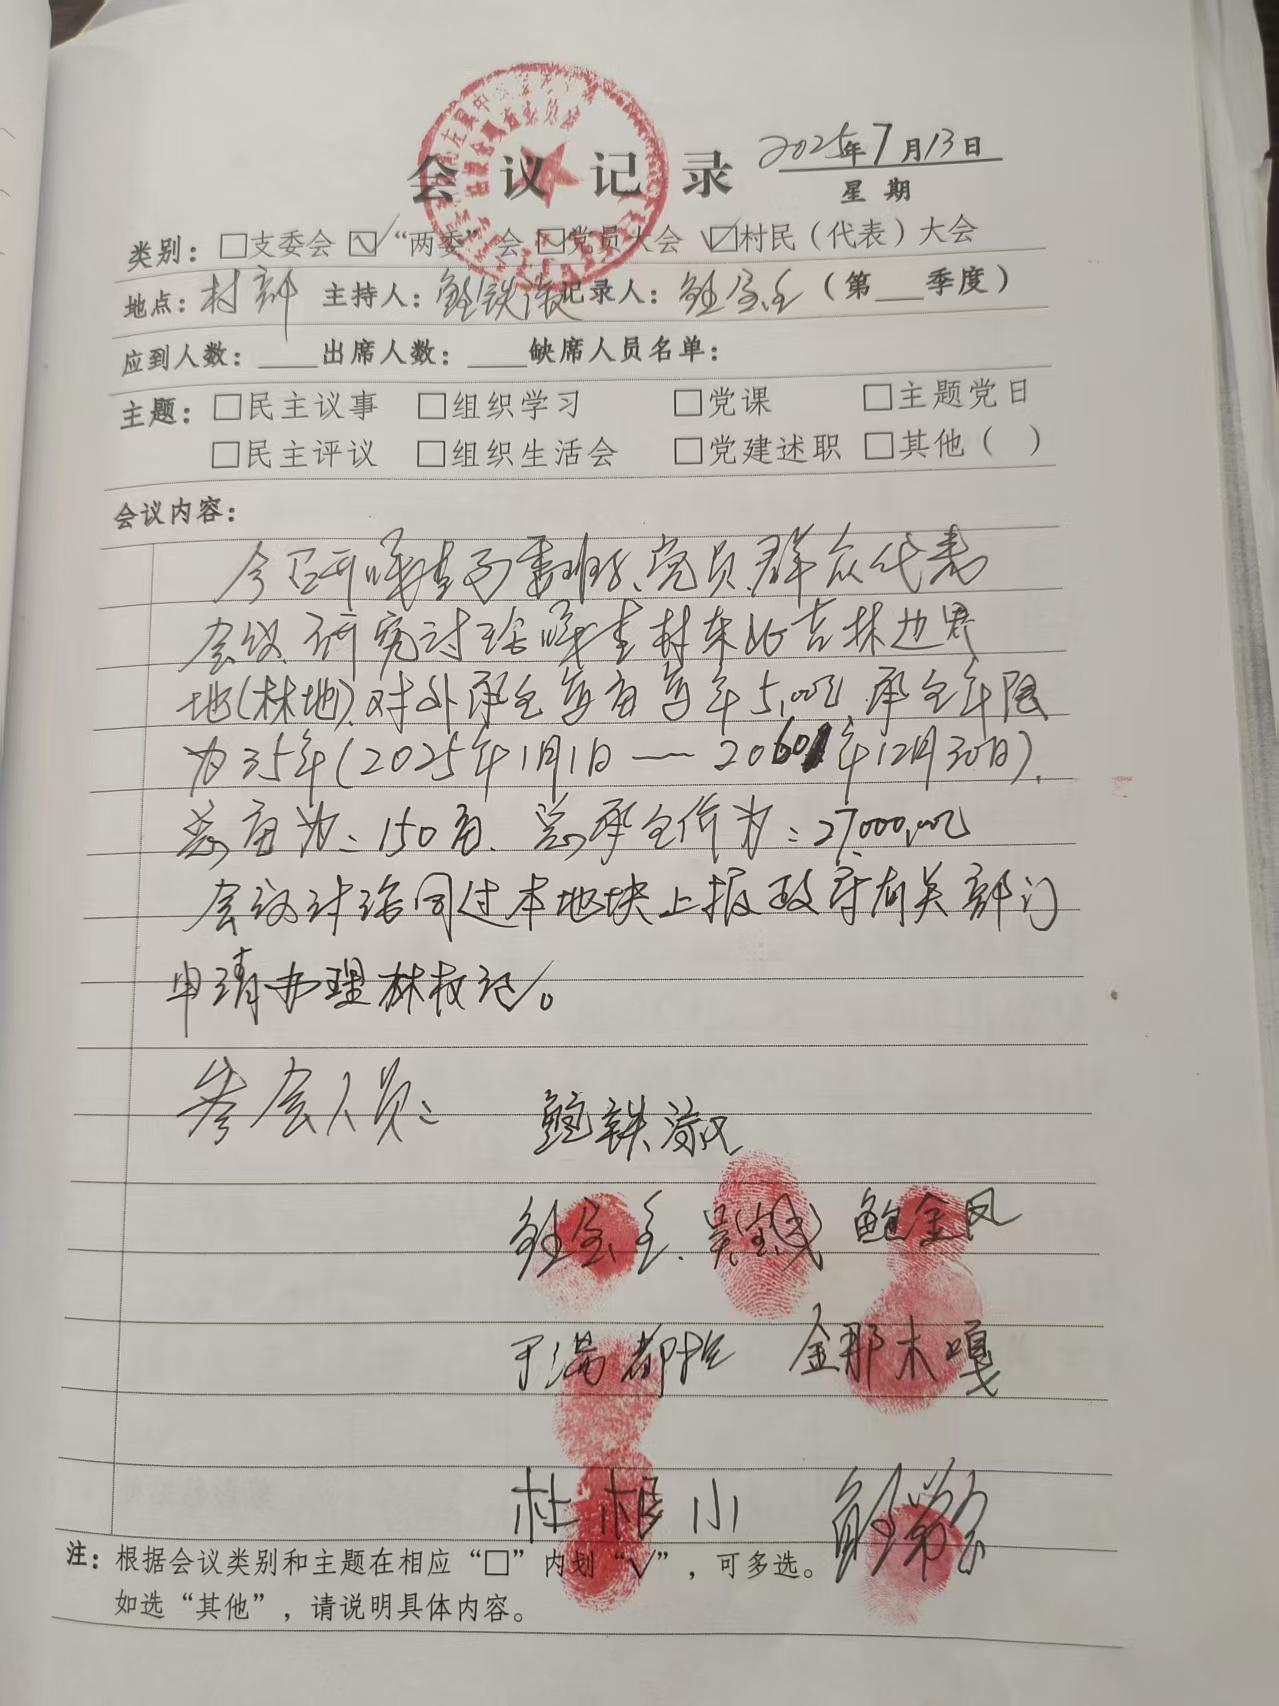 会议记录
2025年7月13日
星期
类别：□支委会 ☑“两委”会 ☑党员大会 ☑村民（代表）大会
地点：村部 主持人：鲍铁 记录人：（第___季度）
应到人数：____出席人数：____缺席人员名单：
主题：□民主议事 □组织学习 □党课 □主题党日
□民主评议 □组织生活会 □党建述职 □其他（ ）
会议内容：
今召开 党员、群众代表
会议研究讨论 村东北吉林边界
地(林地)对外承包每亩每年5.00元 承包年限
为35年(2025年1月1日——2060年12月30日).
总亩为:150亩、总承包价为:27,000.00元
会议讨论同过本地块上报政府有关部门
申请办理林权记。
参会人员:
鲍铁
鲍金凤
金那木嘎
杜根小
注：根据会议类别和主题在相应“□”内划“√”，可多选。
如选“其他”，请说明具体内容。